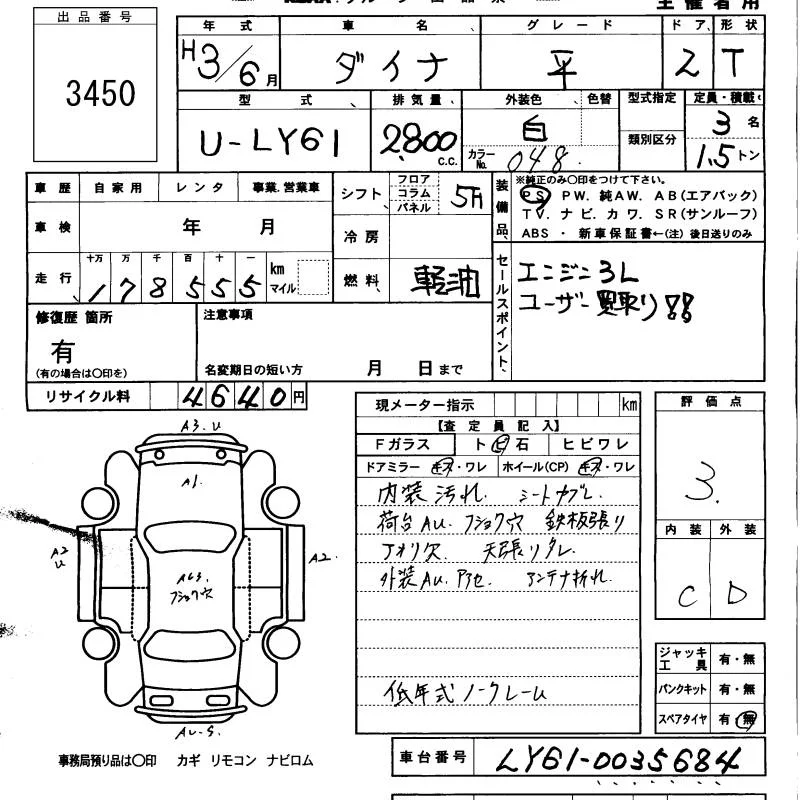 出品番号
3450
主催者用
年式 車名 グレード ドア 形状
H3/6月 ダイナ 平 2 T
型式 排気量 外装色 色替 型式指定 定員・積載
類別区分
U-LY61 2800 c.c. 白 3名
カラーNo. 048 1.5トン
車歴 自家用 レンタ 事業.営業車
車検 年 月
走行 十万 万 千 百 十 一
178555 km マイル
シフト フロア コラム パネル
冷房
燃料 軽油
装備品
※純正のみ○印をつけて下さい。
PS PW. 純AW. AB(エアバック)
TV. ナビ. カワ. SR(サンルーフ)
ABS ・ 新車保証書←(注) 後日送りのみ
セールスポイント
エンジン3L
ユーザー買取り!!
修復歴 箇所
有
(有の場合は○印を)
注意事項
名変期日の短い方 月 日まで
リサイクル料 4640円
現メーター指示 km
【査定員記入】
Fガラス ト ビ 石 ヒビワレ
ドアミラー キズ・ワレ ホイール(CP) キズ・ワレ
内装汚れ. シートカブレ.
荷台AU. フショク穴 鉄板張り
アオリ欠 天張りタレ.
外装AU. アセ. アンテナ折れ.
低年式ノークレーム
評価点
3.
内装 外装
C D
ジャッキ工具 有・無
パンクキット 有・無
スペアタイヤ 有・無
A3.U
A1.
A2 U
A2.
フショク穴
事務局預り品は○印 カギ リモコン ナビロム
車台番号 LY61-0035684